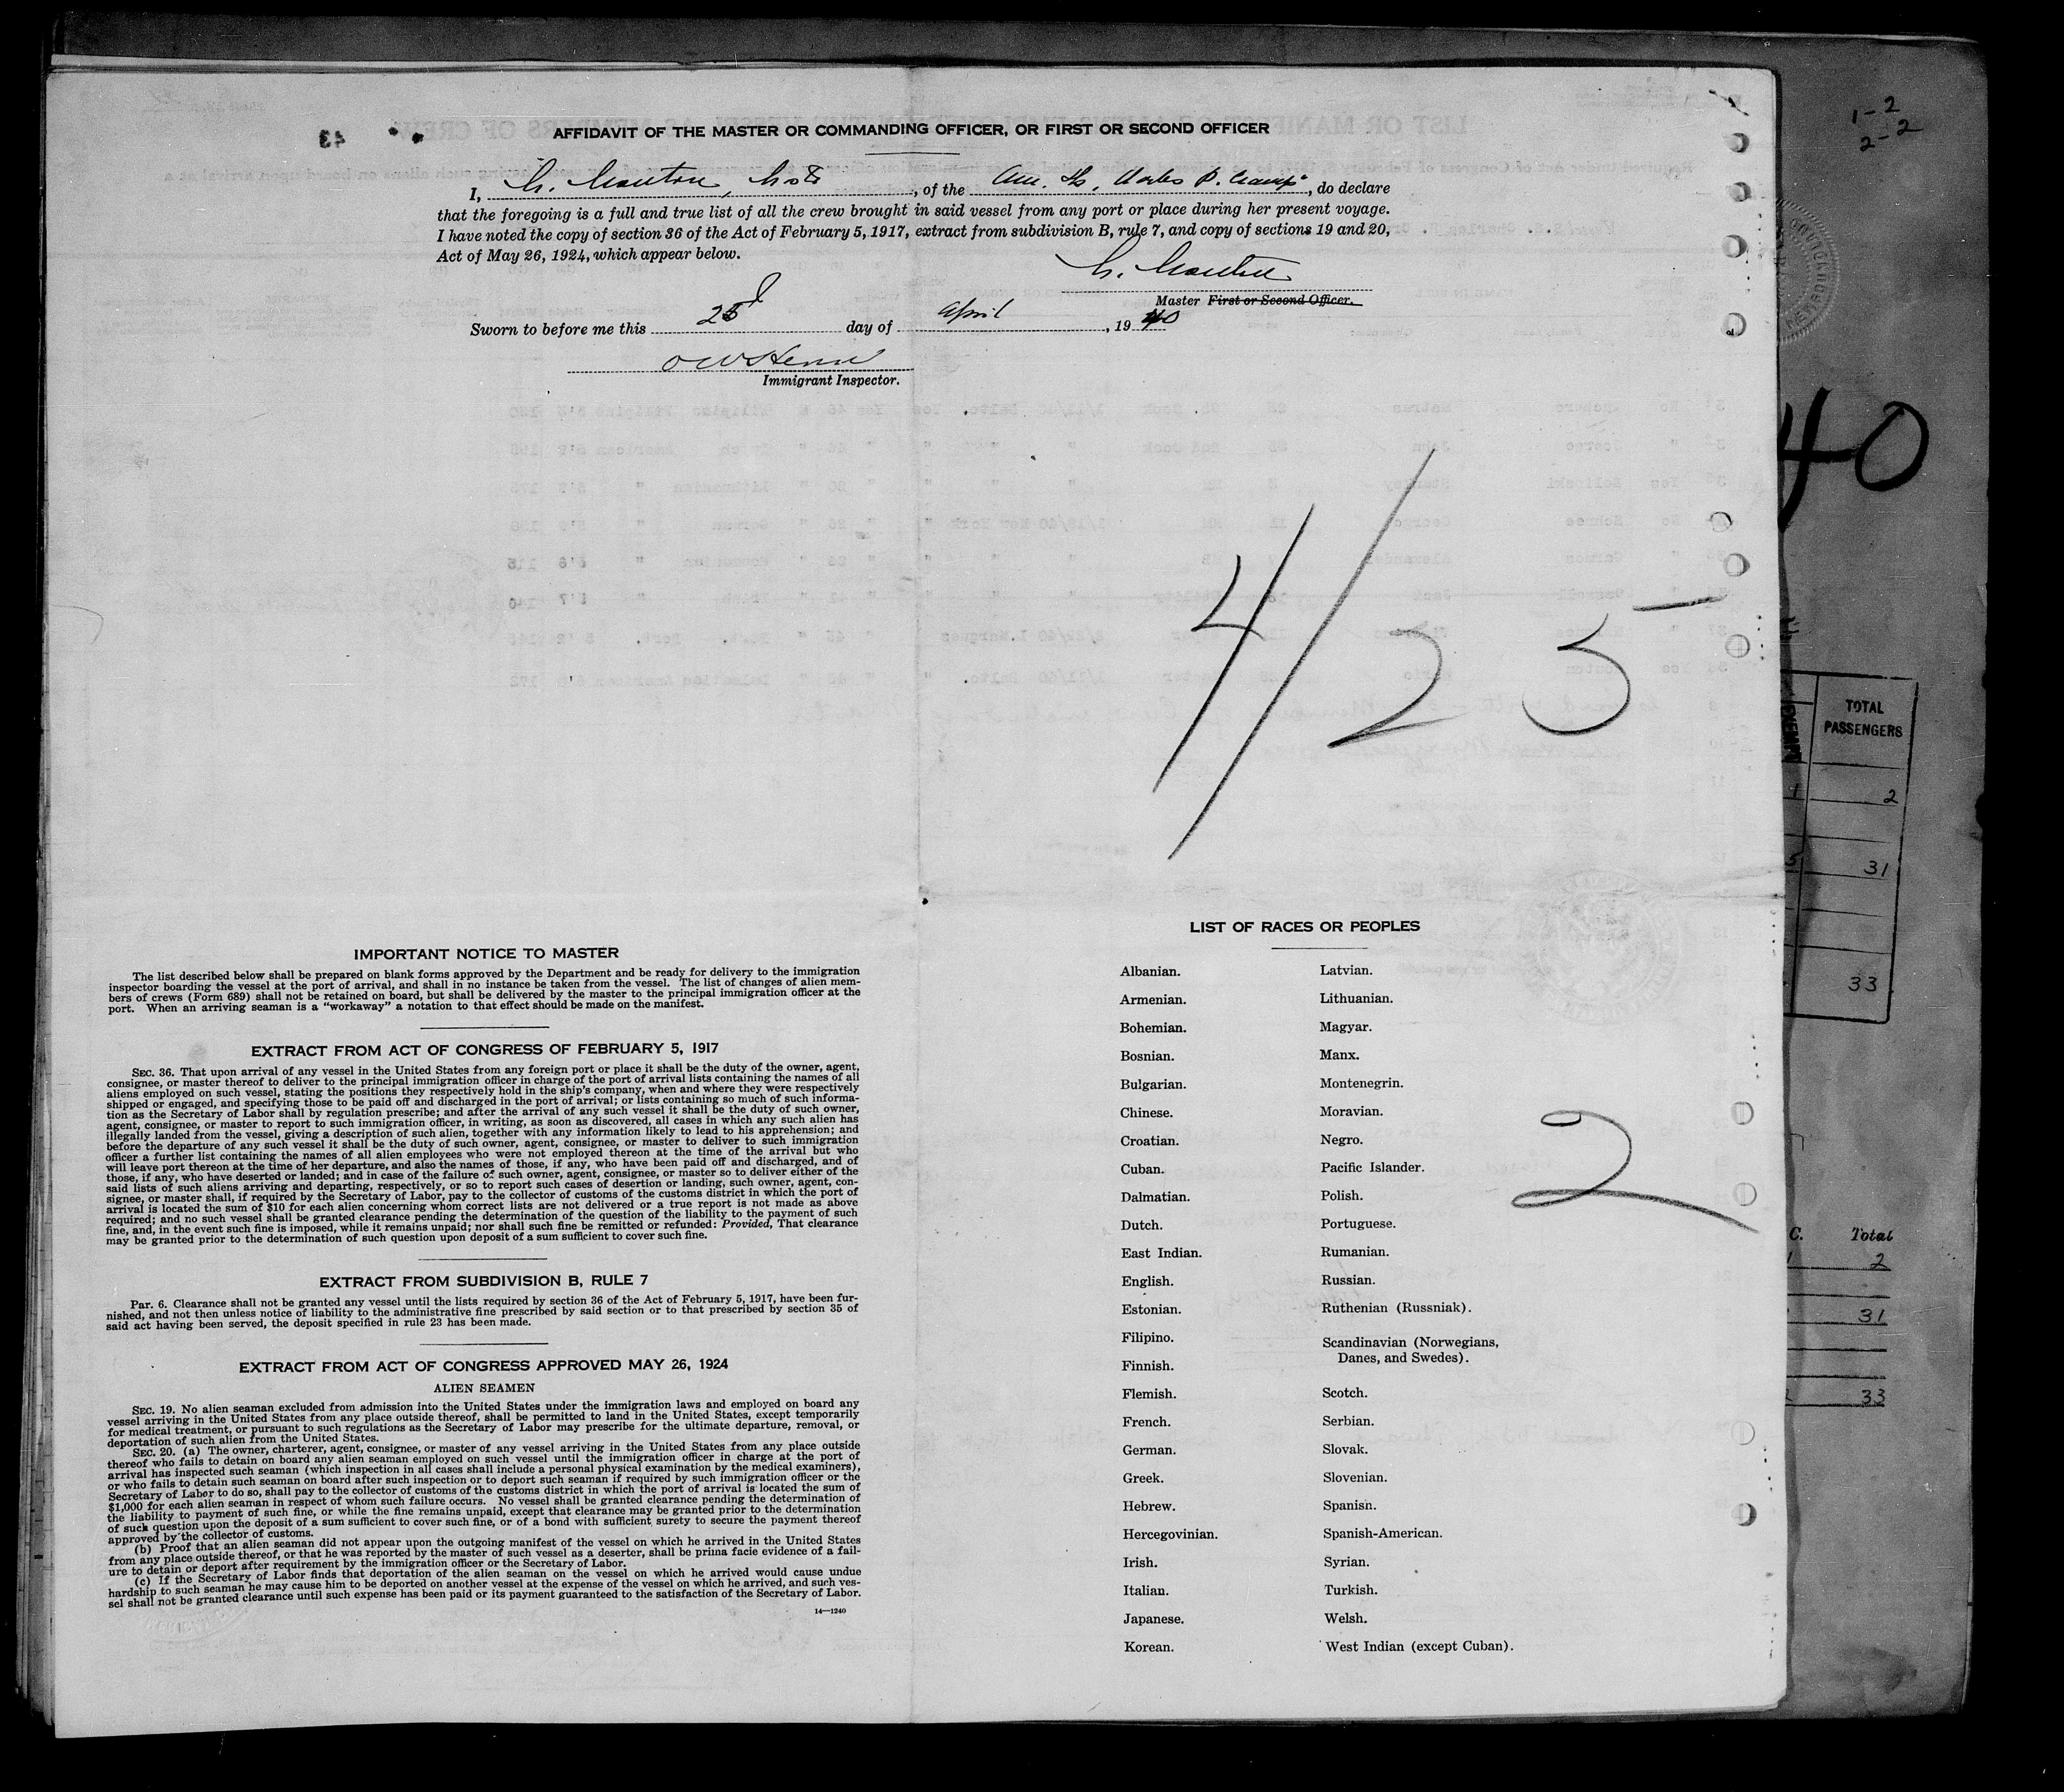 AFFIDAVIT OF THE MASTER OR COMMANDING OFFICER, OR FIRST OR SECOND OFFICER
43
I, , of the Am. P. , do declare
that the foregoing is a full and true list of all the crew brought in said vessel from any port or place during her present voyage.
I have noted the copy of section 36 of the Act of February 5, 1917, extract from subdivision B, rule 7, and copy of sections 19 and 20,
Act of May 26, 1924, which appear below.
Master First or Second Officer.
Sworn to before me this 25 day of April, 1940
Immigrant Inspector.
4/25
2
IMPORTANT NOTICE TO MASTER
The list described below shall be prepared on blank forms approved by the Department and be ready for delivery to the immigration
inspector boarding the vessel at the port of arrival, and shall in no instance be taken from the vessel. The list of changes of alien mem-
bers of crews (Form 689) shall not be retained on board, but shall be delivered by the master to the principal immigration officer at the
port. When an arriving seaman is a "workaway" a notation to that effect should be made on the manifest.
EXTRACT FROM ACT OF CONGRESS OF FEBRUARY 5, 1917
SEC. 36. That upon arrival of any vessel in the United States from any foreign port or place it shall be the duty of the owner, agent,
consignee, or master thereof to deliver to the principal immigration officer in charge of the port of arrival lists containing the names of all
aliens employed on such vessel, stating the positions they respectively hold in the ship's company, when and where they were respectively
shipped or engaged, and specifying those to be paid off and discharged in the port of arrival; or lists containing so much of such informa-
tion as the Secretary of Labor shall by regulation prescribe; and after the arrival of any such vessel it shall be the duty of such owner,
agent, consignee, or master to report to such immigration officer, in writing, as soon as discovered, all cases in which any such alien has
illegally landed from the vessel, giving a description of such alien, together with any information likely to lead to his apprehension; and
before the departure of any such vessel it shall be the duty of such owner, agent, consignee, or master to deliver to such immigration
officer a further list containing the names of all alien employees who were not employed thereon at the time of the arrival but who
will leave port thereon at the time of her departure, and also the names of those, if any, who have been paid off and discharged, and of
those, if any, who have deserted or landed; and in case of the failure of such owner, agent, consignee, or master so to deliver either of the
said lists of such aliens arriving and departing, respectively, or so to report such cases of desertion or landing, such owner, agent, con-
signee, or master shall, if required by the Secretary of Labor, pay to the collector of customs of the customs district in which the port of
arrival is located the sum of $10 for each alien concerning whom correct lists are not delivered or a true report is not made as above
required; and no such vessel shall be granted clearance pending the determination of the question of the liability to the payment of such
fine, and, in the event such fine is imposed, while it remains unpaid; nor shall such fine be remitted or refunded: Provided, That clearance
may be granted prior to the determination of such question upon deposit of a sum sufficient to cover such fine.
EXTRACT FROM SUBDIVISION B, RULE 7
Par. 6. Clearance shall not be granted any vessel until the lists required by section 36 of the Act of February 5, 1917, have been fur-
nished, and not then unless notice of liability to the administrative fine prescribed by said section or to that prescribed by section 35 of
said act having been served, the deposit specified in rule 23 has been made.
EXTRACT FROM ACT OF CONGRESS APPROVED MAY 26, 1924
ALIEN SEAMEN
SEC. 19. No alien seaman excluded from admission into the United States under the immigration laws and employed on board any
vessel arriving in the United States from any place outside thereof, shall be permitted to land in the United States, except temporarily
for medical treatment, or pursuant to such regulations as the Secretary of Labor may prescribe for the ultimate departure, removal, or
deportation of such alien from the United States.
SEC. 20. (a) The owner, charterer, agent, consignee, or master of any vessel arriving in the United States from any place outside
thereof who fails to detain on board any alien seaman employed on such vessel until the immigration officer in charge at the port of
arrival has inspected such seaman (which inspection in all cases shall include a personal physical examination by the medical examiners),
or who fails to detain such seaman on board after such inspection or to deport such seaman if required by such immigration officer or the
Secretary of Labor to do so, shall pay to the collector of customs of the customs district in which the port of arrival is located the sum of
$1,000 for each alien seaman in respect of whom such failure occurs. No vessel shall be granted clearance pending the determination of
the liability to payment of such fine, or while the fine remains unpaid, except that clearance may be granted prior to the determination
of such question upon the deposit of a sum sufficient to cover such fine, or of a bond with sufficient surety to secure the payment thereof
approved by the collector of customs.
(b) Proof that an alien seaman did not appear upon the outgoing manifest of the vessel on which he arrived in the United States
from any place outside thereof, or that he was reported by the master of such vessel as a deserter, shall be prima facie evidence of a fail-
ure to detain or deport after requirement by the immigration officer or the Secretary of Labor.
(c) If the Secretary of Labor finds that deportation of the alien seaman on the vessel on which he arrived would cause undue
hardship to such seaman he may cause him to be deported on another vessel at the expense of the vessel on which he arrived, and such ves-
sel shall not be granted clearance until such expense has been paid or its payment guaranteed to the satisfaction of the Secretary of Labor.
14—1240
LIST OF RACES OR PEOPLES
Albanian.
Armenian.
Bohemian.
Bosnian.
Bulgarian.
Chinese.
Croatian.
Cuban.
Dalmatian.
Dutch.
East Indian.
English.
Estonian.
Filipino.
Finnish.
Flemish.
French.
German.
Greek.
Hebrew.
Hercegovinian.
Irish.
Italian.
Japanese.
Korean.
Latvian.
Lithuanian.
Magyar.
Manx.
Montenegrin.
Moravian.
Negro.
Pacific Islander.
Polish.
Portuguese.
Rumanian.
Russian.
Ruthenian (Russniak).
Scandinavian (Norwegians,
Danes, and Swedes).
Scotch.
Serbian.
Slovak.
Slovenian.
Spanish.
Spanish-American.
Syrian.
Turkish.
Welsh.
West Indian (except Cuban).
1-2
2-2
40
TOTAL
PASSENGERS
1 2
5 31
33
C. Total
1 2
31
2 33